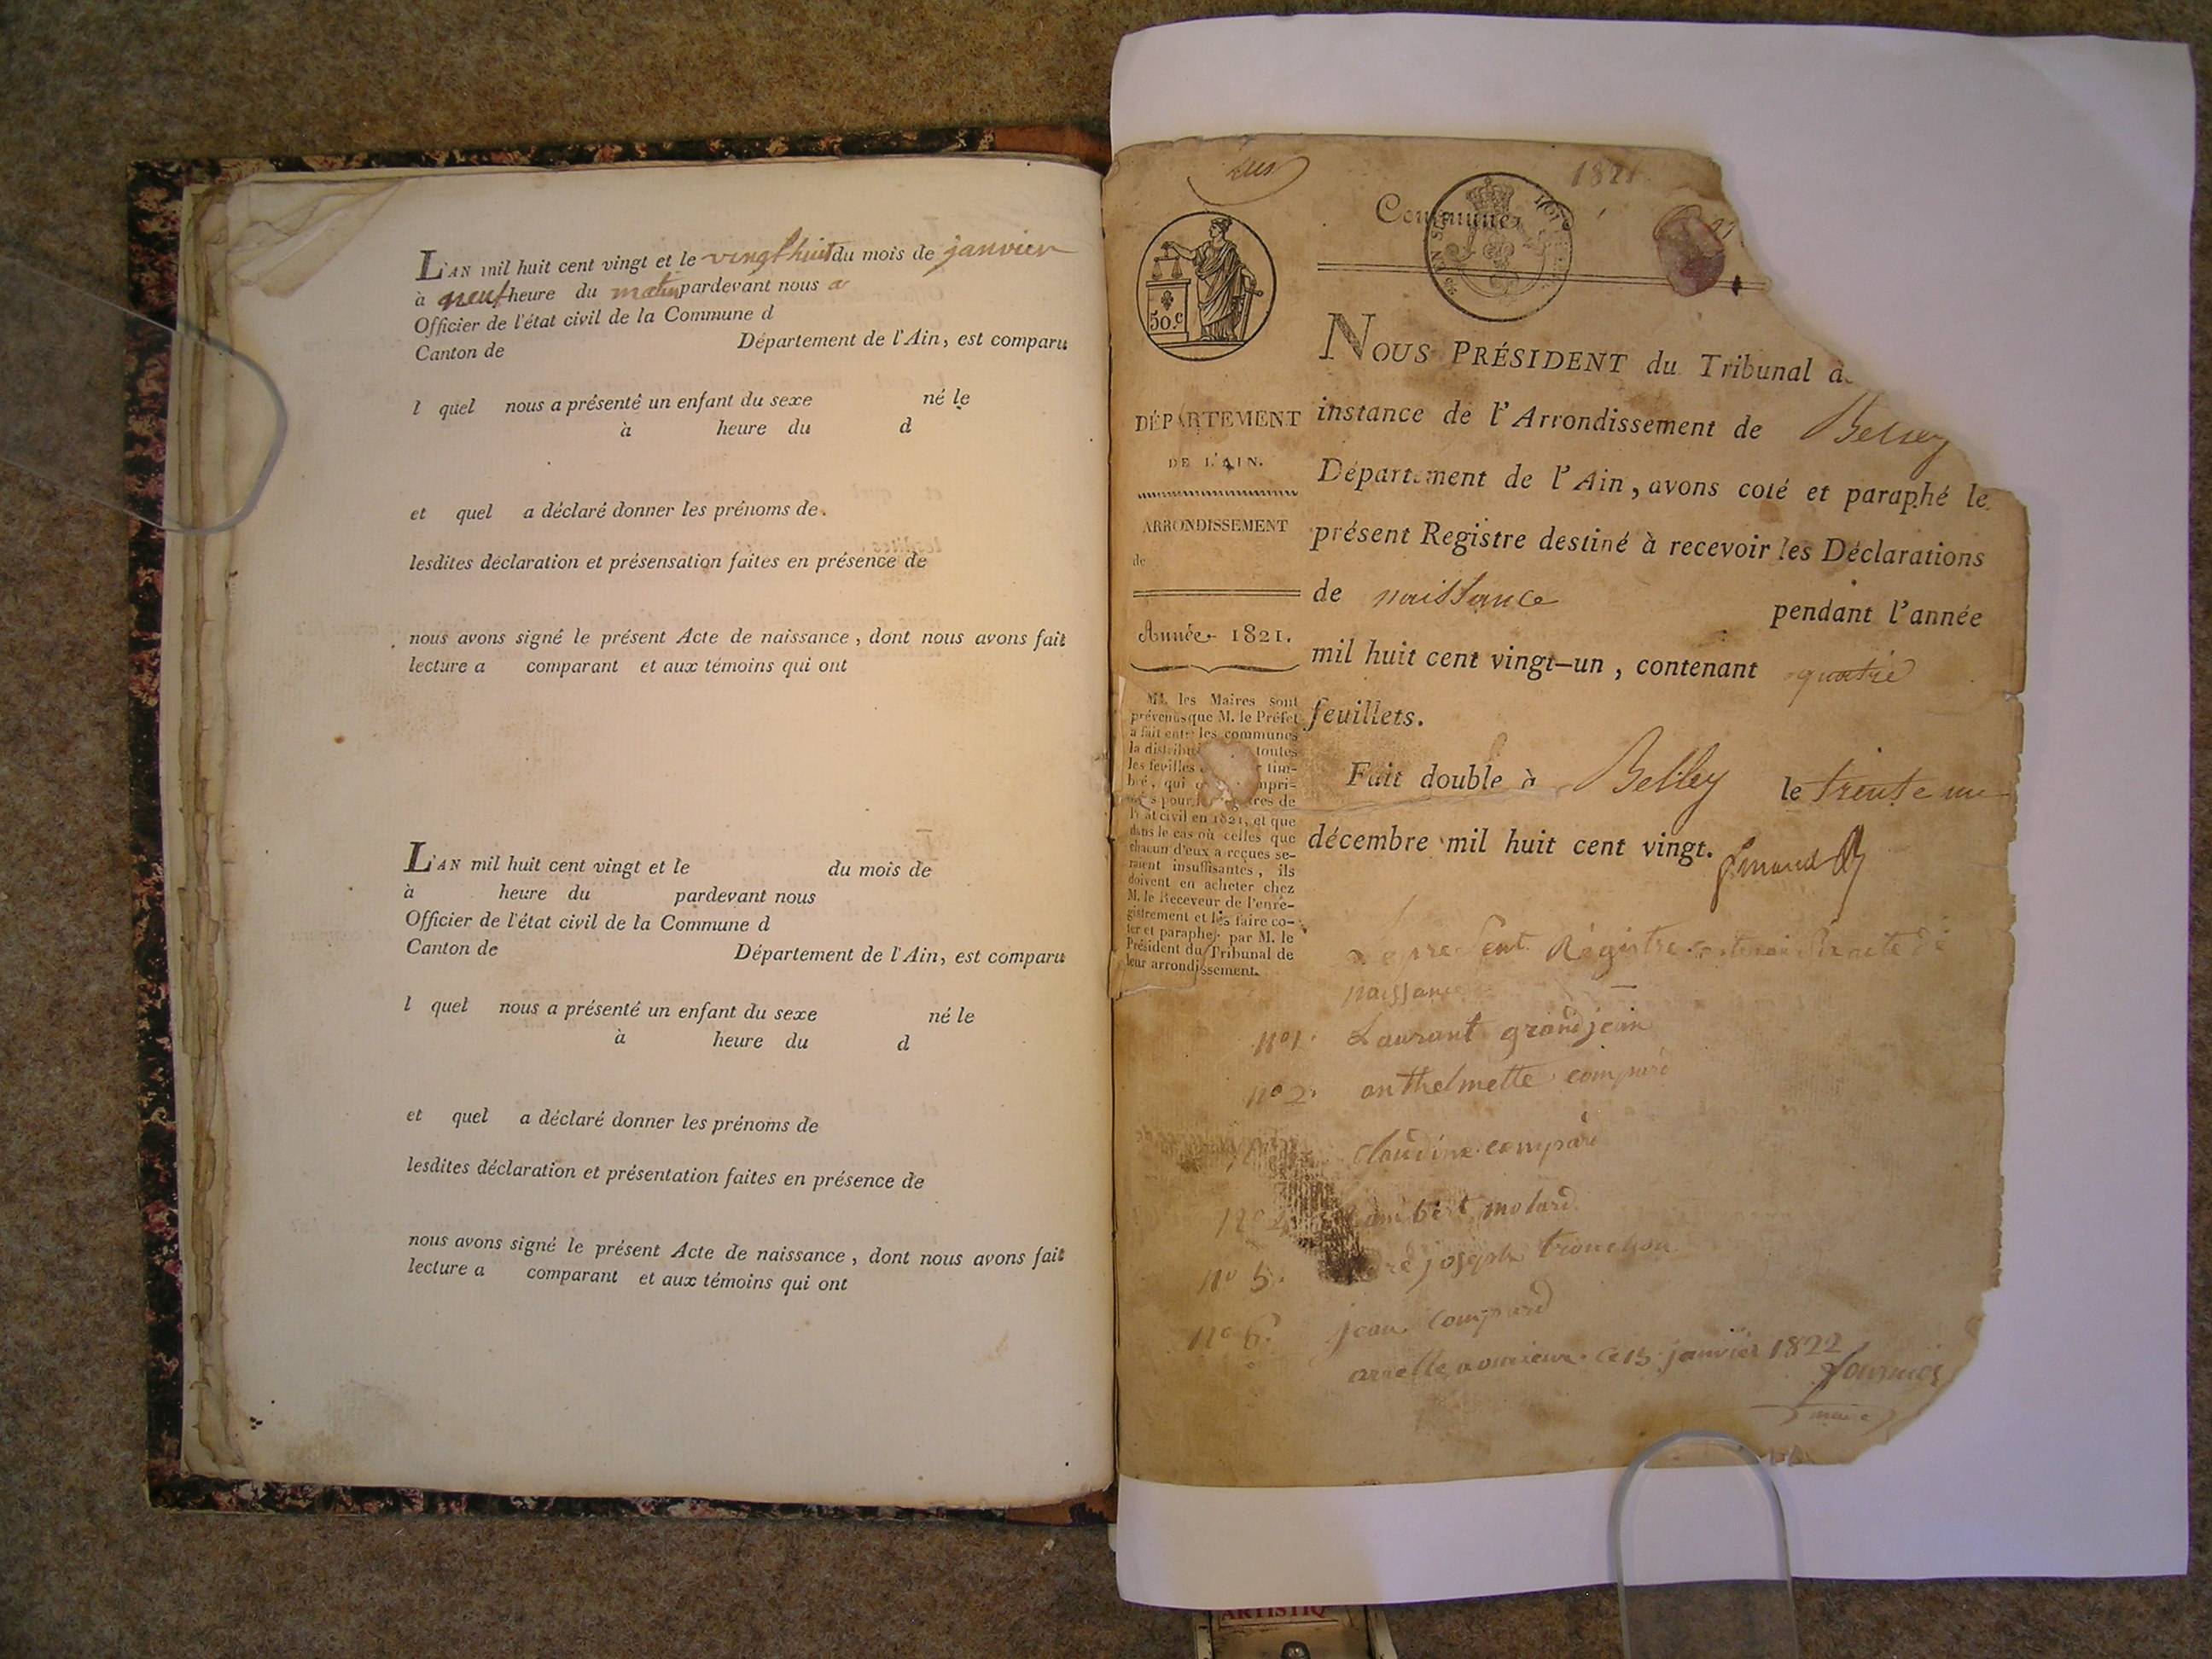 L'AN mil huit cent vingt et le vingt huit du mois de janvier
à neuf heure du matin pardevant nous a
Officier de l'état civil de la Commune d
Canton de Département de l'Ain, est comparu
l quel nous a présenté un enfant du sexe né le
à heure du d
et quel a déclaré donner les prénoms de.
lesdites déclaration et présensation faites en présence de
nous avons signé le présent Acte de naissance, dont nous avons fait
lecture a comparant et aux témoins qui ont
L'AN mil huit cent vingt et le du mois de
à heure du pardevant nous
Officier de l'état civil de la Commune d
Canton de Département de l'Ain, est comparu
l quel nous a présenté un enfant du sexe né le
à heure du d
et quel a déclaré donner les prénoms de
lesdites déclaration et présentation faites en présence de
nous avons signé le présent Acte de naissance, dont nous avons fait
lecture a comparant et aux témoins qui ont
1821
Commune
50.c
DÉPARTEMENT
DE L'AIN.
ARRONDISSEMENT
de
Année 1821.
MM. les Maires sont
prévenus que M. le Préfet
a fait entre les communes
la toutes
les feuilles tim-
bré, qui
pour res de
l'état civil en 1821, et que
dans le cas où celles que
chacun d'eux a reçues se-
raient insuffisantes, ils
doivent en acheter chez
M. le Receveur de l'enre-
gistrement et les faire co-
ter et parapher par M. le
Président du Tribunal de
leur arrondissement.
NOUS PRÉSIDENT du Tribunal
instance de l'Arrondissement de Belley
Département de l'Ain, avons coté et paraphé le
présent Registre destiné à recevoir les Déclarations
de naissance pendant l'année
mil huit cent vingt-un, contenant quatre
feuillets.
Fait double à Belley le trente un
décembre mil huit cent vingt.
Le present Régistre
naissance
n° 1. Laurant grandjean
n° 2. anthelmette compard
Claudine compard
n° 4 molard
n° 5. joseph tronchon
n° 6. jean compard
ce 15 janvier 1822
fournier
maire
ARTISTIQ